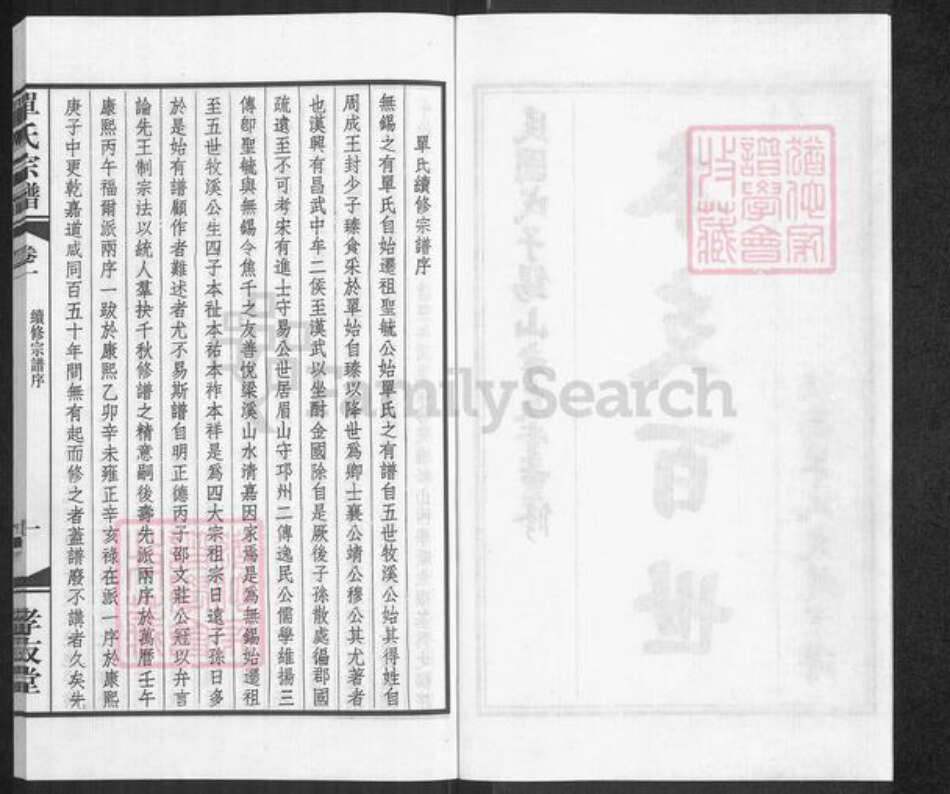 單氏續修宗譜序
無錫之有單氏自始遷祖聖毓公始單氏之有譜自五世牧溪公始其得姓自
周成王封少子臻食采於單始自臻以降世為卿士襄公靖公穆公其尤著者
也漢興有昌武中牟二侯至漢武以坐酎金國除自是厥後子孫散處徧郡國
疏遠至不可考宋有進士守易公世居眉山守邛州二傳逸民公儒學維揚三
傳卽聖毓與無錫令焦千之友善悅梁溪山水清嘉因家焉是為無錫始遷祖
至五世牧溪公生四子本祉本祐本祚本祥是爲四大宗祖宗日遠子孫日多
於是始有譜顧作者難述者尤不易斯譜自明正德丙子邵文莊公冠以弁言
論先王制宗法以統人羣抉千秋修譜之精意嗣後壽先派兩序於萬曆壬午
康熙丙午福爾派兩序一跋於康熙乙卯辛未雍正辛亥祿在派一序於康熙
庚子中更乾嘉道咸同百五十年間無有起而修之者蓋譜廢不講者久矣先
單氏宗譜
卷一
續修宗譜序
一
孝友堂
猶他家
譜學會
收藏
FamilySearch